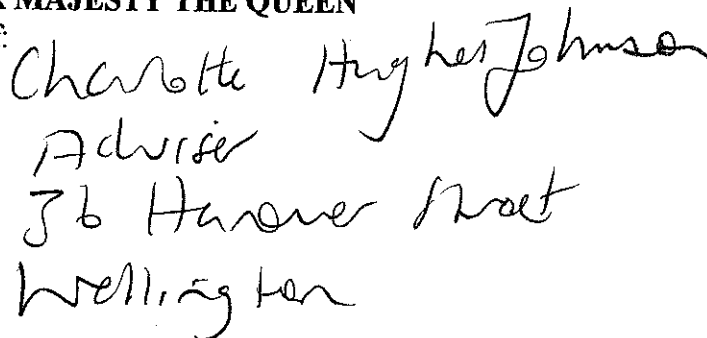 MAJESTY THE QUEEN
Charlotte Hughes Johnson
Adviser
36 Hanover Street
Wellington